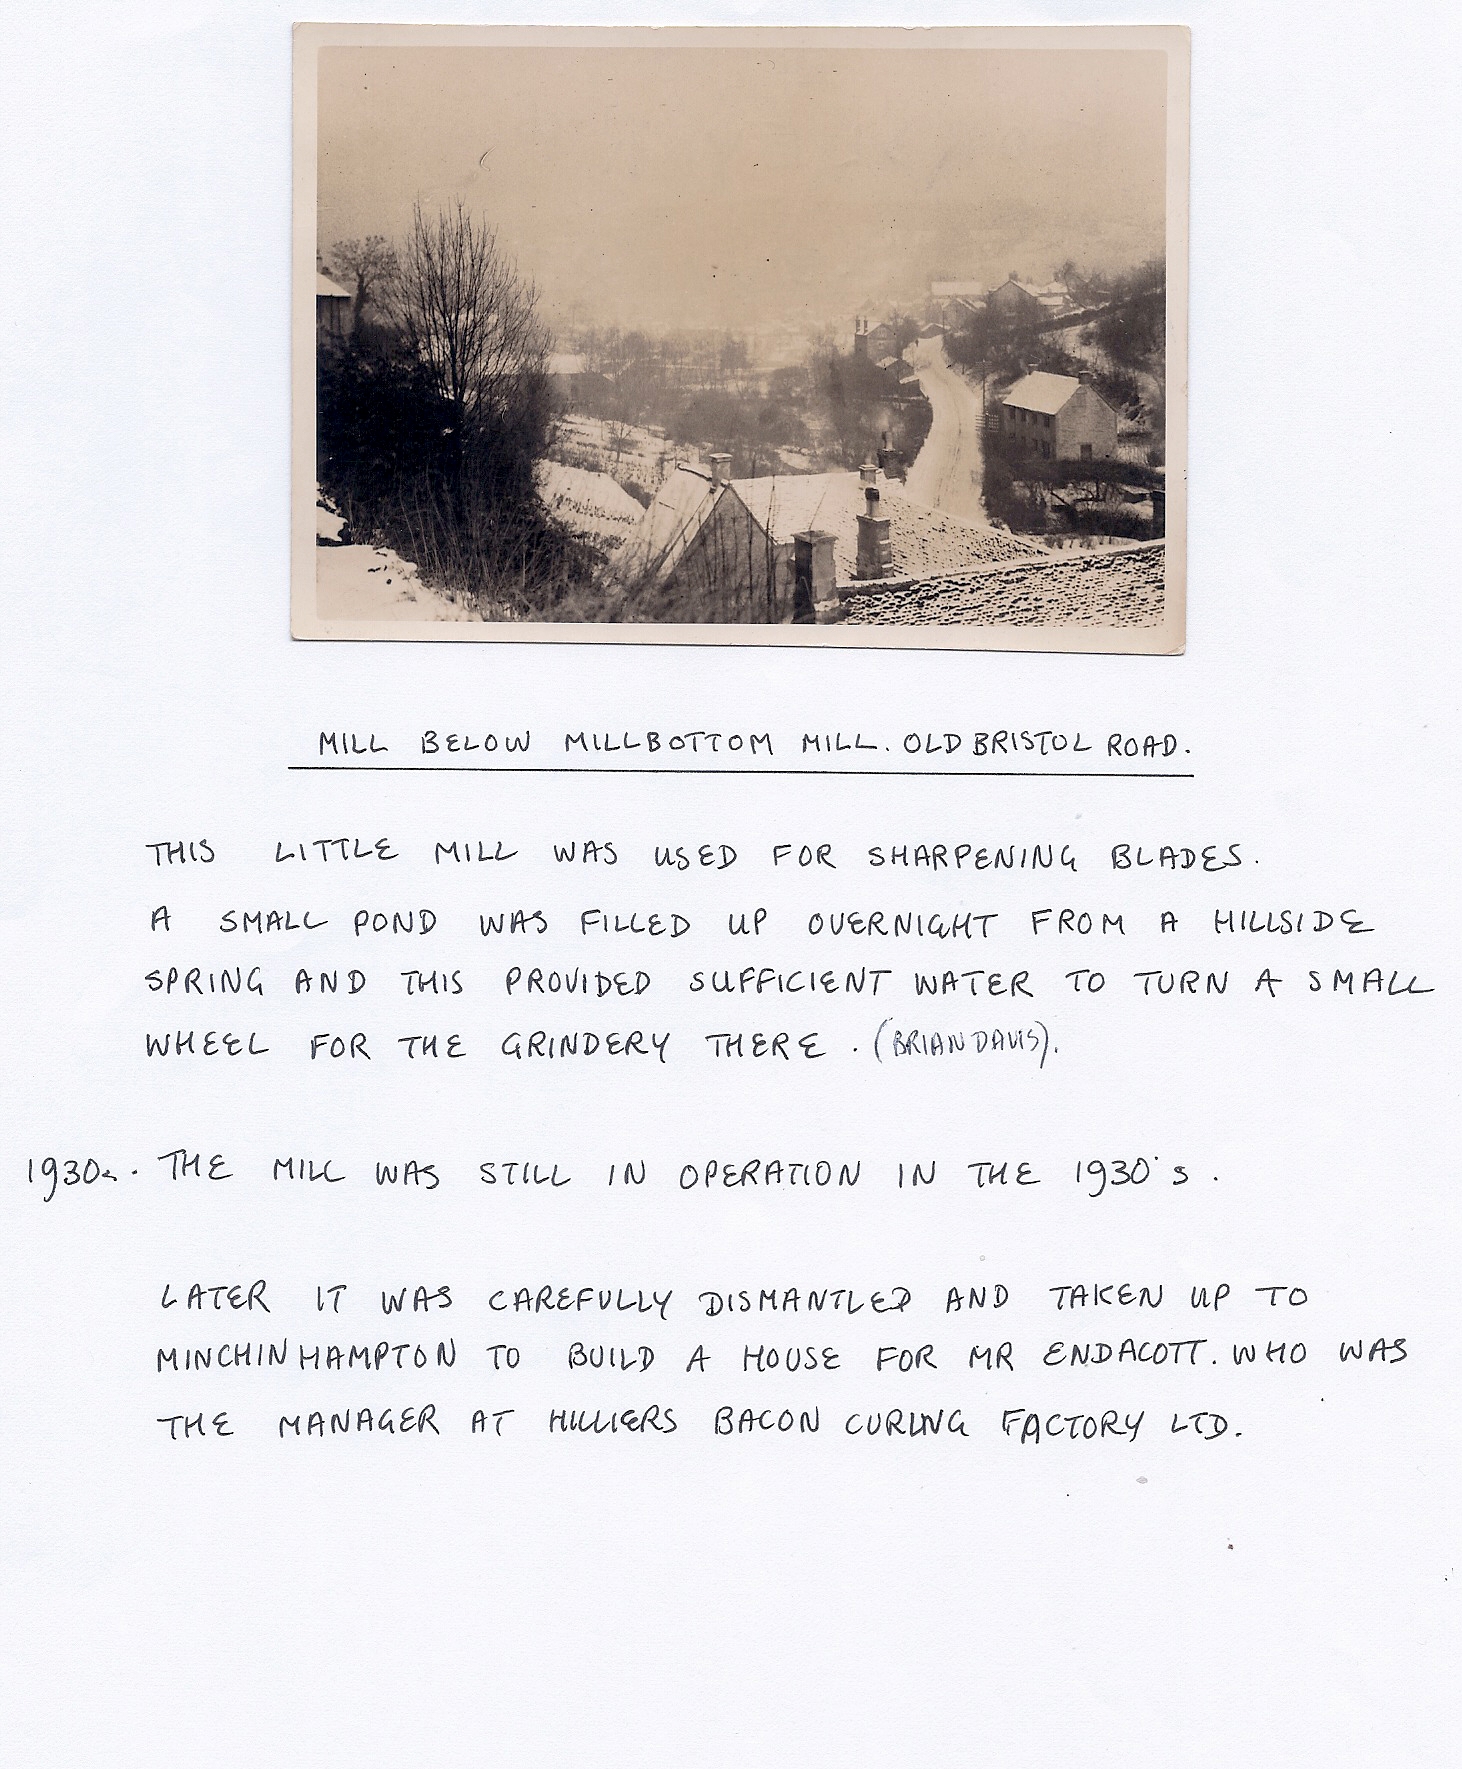 MILL BELOW MILLBOTTOM MILL. OLD BRISTOL ROAD.
THIS LITTLE MILL WAS USED FOR SHARPENING BLADES.
A SMALL POND WAS FILLED UP OVERNIGHT FROM A HILLSIDE
SPRING AND THIS PROVIDED SUFFICIENT WATER TO TURN A SMALL
WHEEL FOR THE GRINDERY THERE. (BRIAN DAVIS).
1930s. THE MILL WAS STILL IN OPERATION IN THE 1930's.
LATER IT WAS CAREFULLY DISMANTLED AND TAKEN UP TO
MINCHINHAMPTON TO BUILD A HOUSE FOR MR ENDACOTT. WHO WAS
THE MANAGER AT HILLIERS BACON CURING FACTORY LTD.